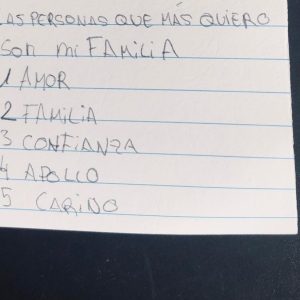 LAS PERSONAS QUE MÁS QUIERO
SON mi FAMiLiA
1 AMOR
2 FAMILIA
3 CONFIANZA
4 APOLLO
5 CARINO